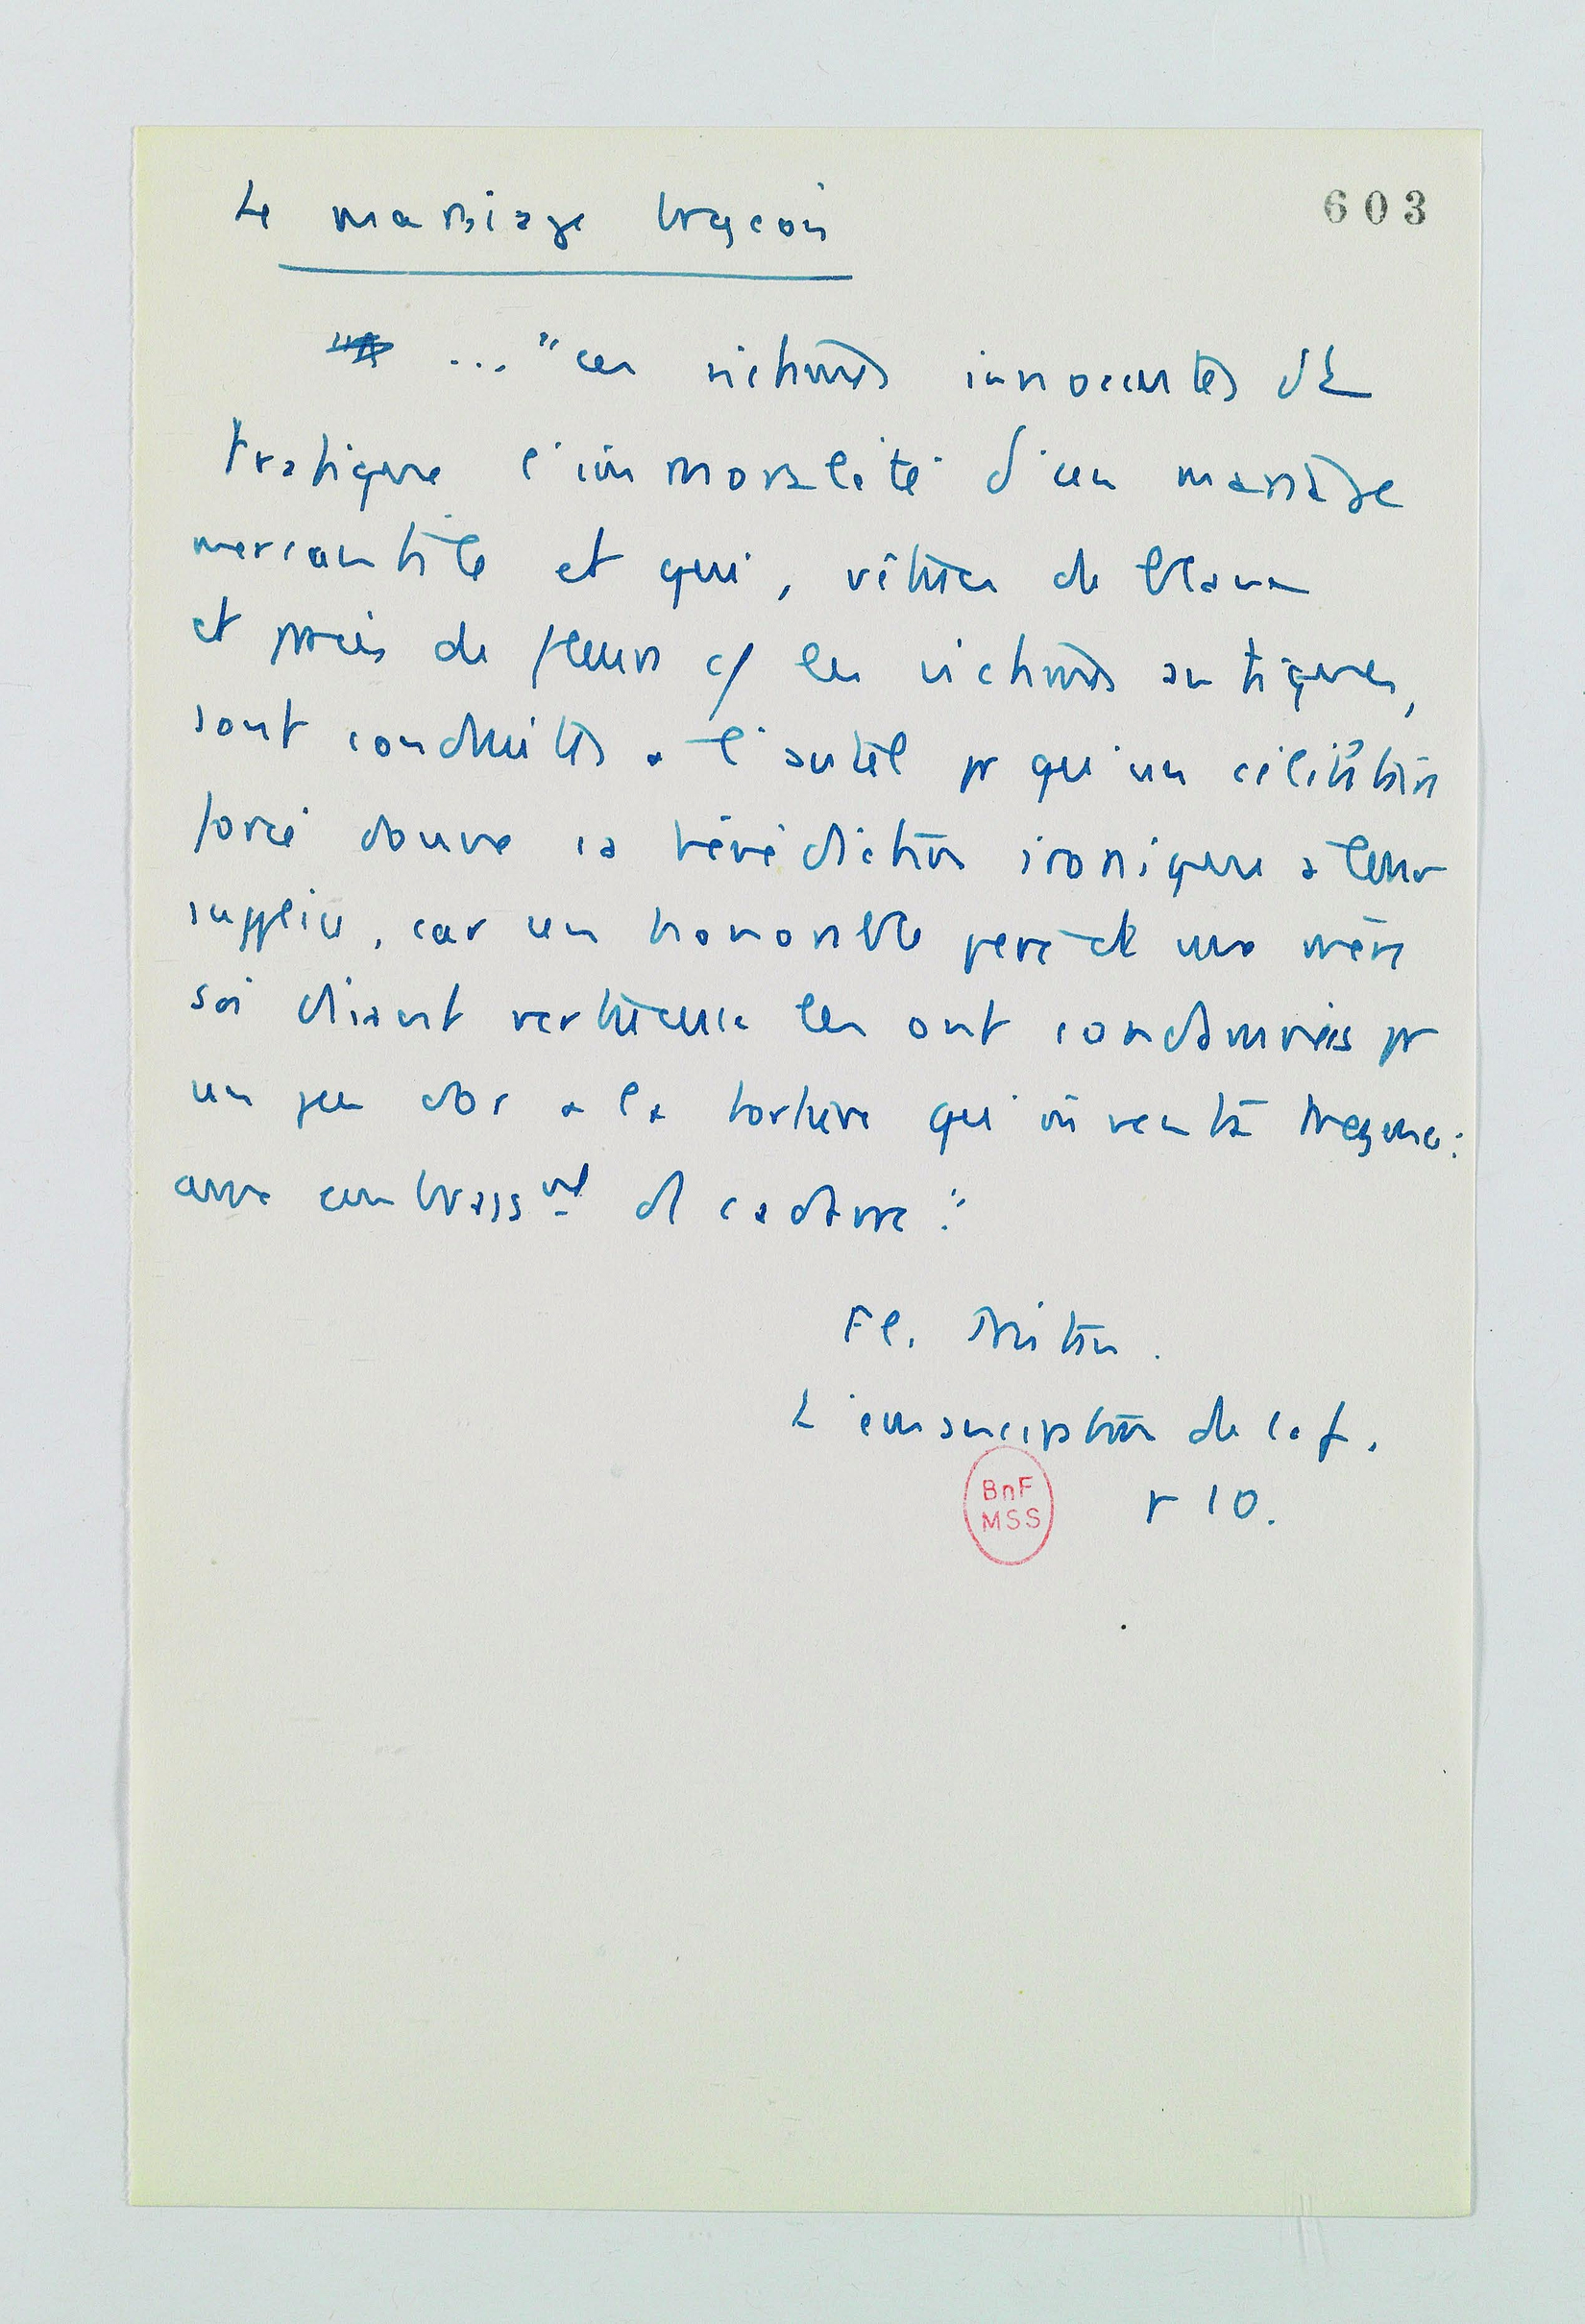 Le mariage bourgeois
603
... "ces victimes innocentes de
pratique l'immoralité d'un mariage
mercantile et qui, vêtues de blanc
et parées de fleurs c/ les victimes antiques,
sont conduites à l'autel pr qu'un célibataire
forcé donne sa bénédiction ironique à leur
supplice, car un honorable père et une mère
soi disant vertueuse les ont condamnées pr
un peu d'or à la torture qu'inventa Mézence :
une embrassmt de cadavre."
Fl. Tristan.
L'émancipation de la f.
p 10.
BnF
MSS